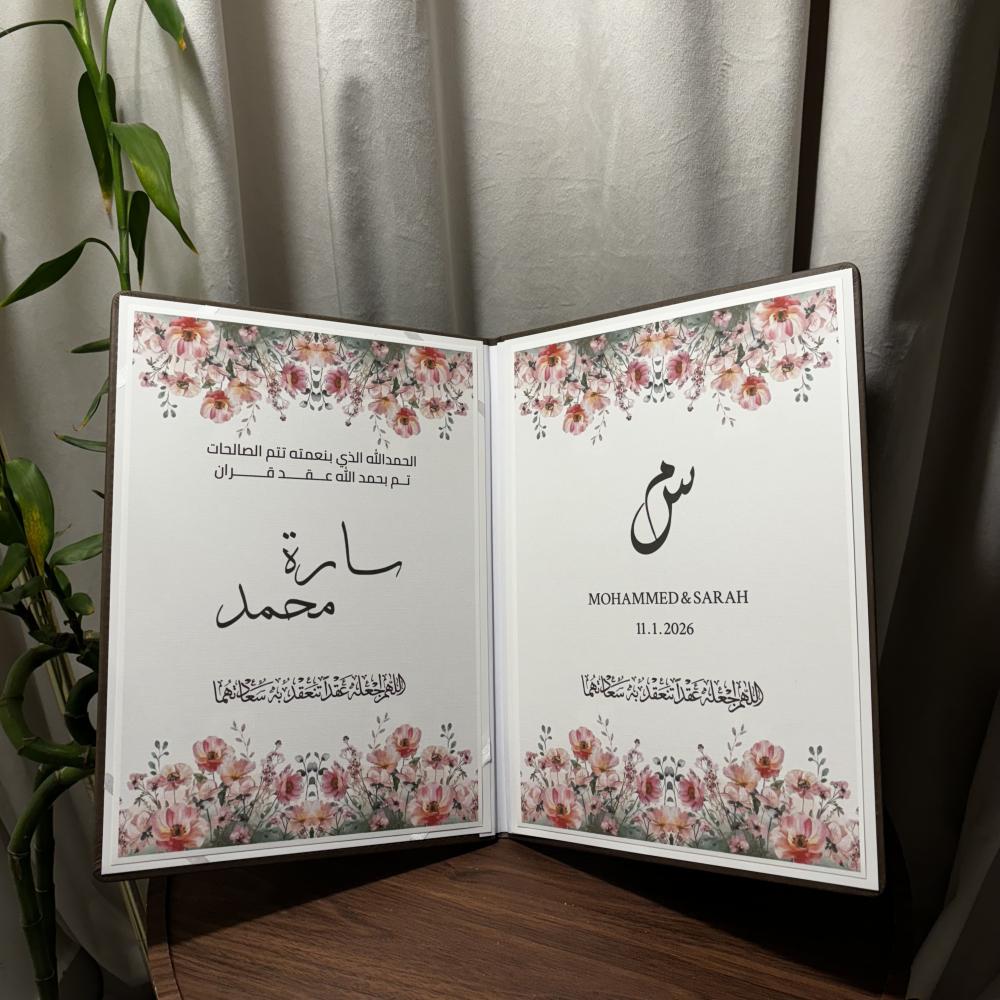 الحمدالله الذي بنعمته تتم الصالحات
تم بحمد الله عـقـد قـران
سارة
محمد
اللهم اجعله عقدا تنعقد به سعادتهما
سم
MOHAMMED & SARAH
11.1.2026
اللهم اجعله عقدا تنعقد به سعادتهما